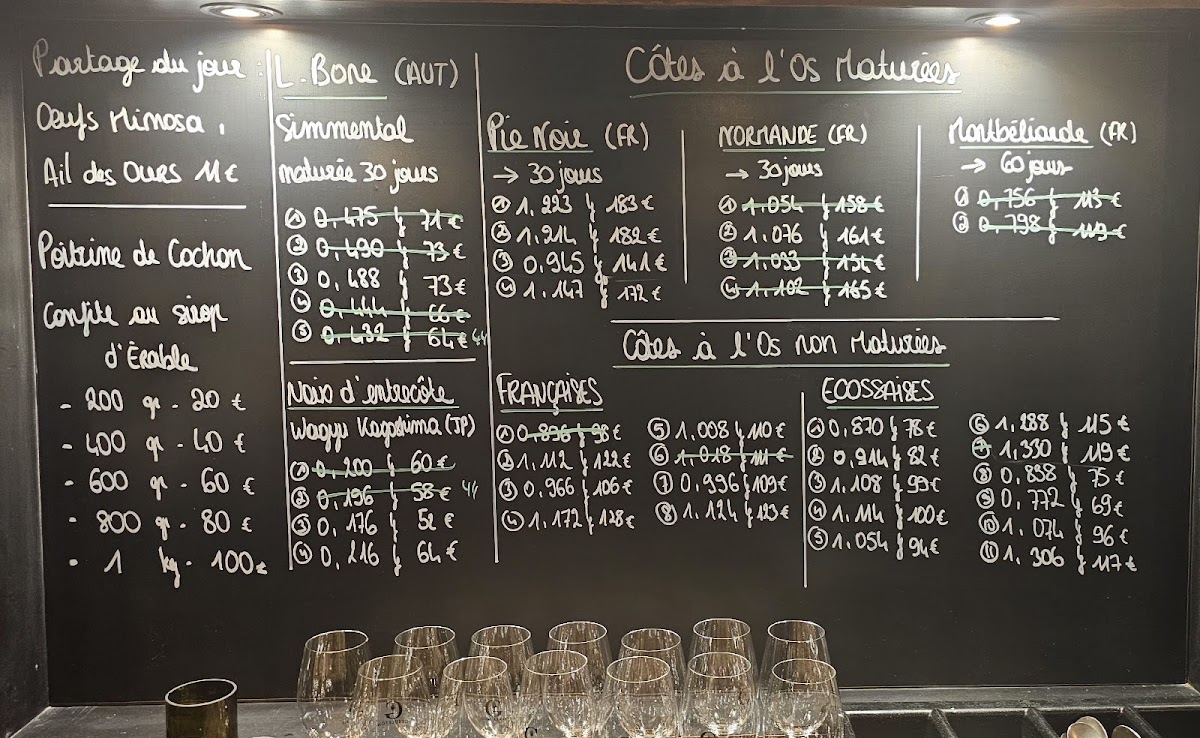 Partage du jour :
Oeufs Mimosa,
Ail des Ours 11€
Poitrine de Cochon
Confite au sirop
d'Érable
- 200 gr - 20 €
- 400 gr - 40 €
- 600 gr - 60 €
- 800 gr - 80 €
- 1 kg - 100€
L. Bone (AUT)
Simmental
maturée 30 jours
① 0,475 } 71€
② 0,490 } 73€
③ 0,488 } 73€
④ 0,444 } 66€
⑤ 0,432 } 64€
Noix d'entrecôte
Wagyu Kagoshima (JP)
① 0,200 } 60€
② 0,196 } 58€
③ 0,176 } 52€
④ 0,216 } 64€
Côtes à l'Os Maturées
Pie Noie (FR)
→ 30 jours
① 1,223 } 183€
② 1,214 } 182€
③ 0,945 } 141€
④ 1,147 } 172€
NORMANDE (FR)
→ 30 jours
① 1,054 } 158€
② 1,076 } 161€
③ 1,033 } 154€
④ 1,102 } 165€
Montbéliarde (FR)
→ 60 jours
① 0,756 } 113€
② 0,798 } 119€
Côtes à l'Os non Maturées
FRANÇAISES
① 0,896 } 98€
② 1,112 } 122€
③ 0,966 } 106€
④ 1,172 } 128€
⑤ 1,008 } 110€
⑥ 1,018 } 111€
⑦ 0,996 } 109€
⑧ 1,124 } 123€
ECOSSAISES
① 0,870 } 78€
② 0,914 } 82€
③ 1,108 } 99€
④ 1,114 } 100€
⑤ 1,054 } 94€
⑥ 1,288 } 115€
⑦ 1,330 } 119€
⑧ 0,838 } 75€
⑨ 0,772 } 69€
⑩ 1,074 } 96€
⑪ 1,306 } 117€